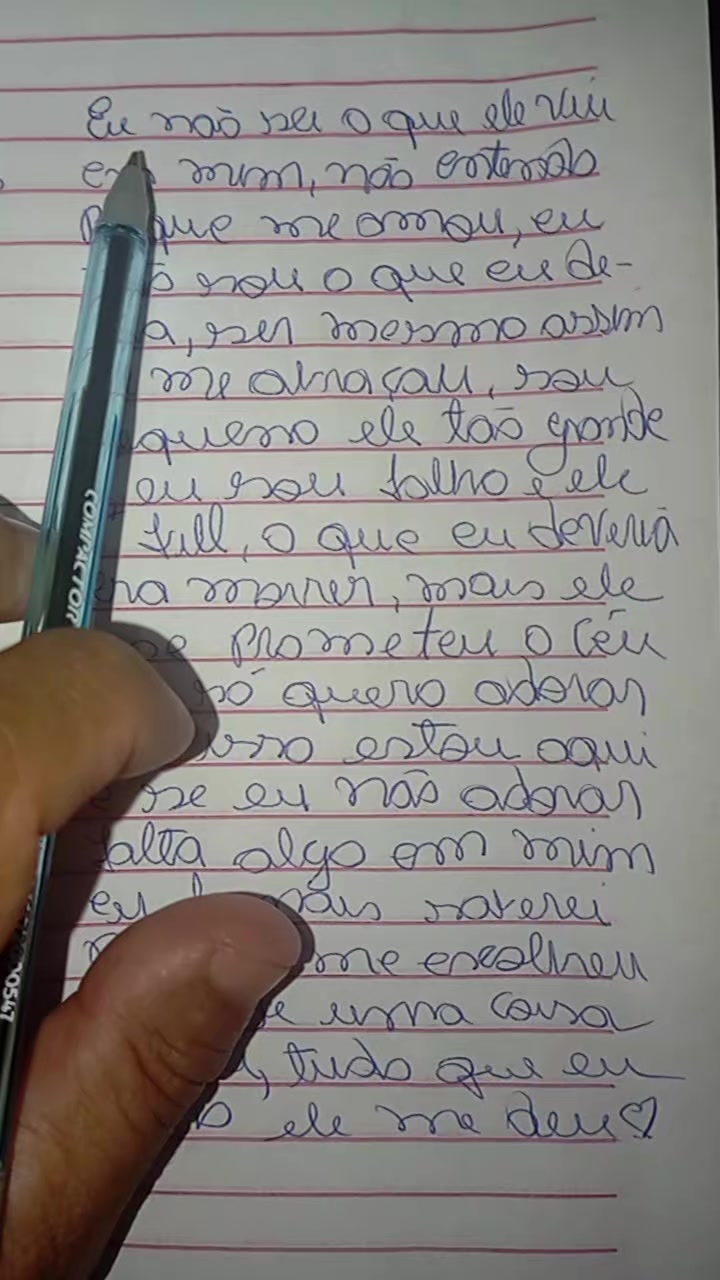 Eu não sei o que ele viu
em mim, não entendo
Porque me amou, eu
não sou o que eu de-
a, ser mesmo assim
me abraçou, sou
queno ele tão grande
eu sou falho e ele
fiell, o que eu deveria
era morrer, mais ele
me Prometeu o Céu
só quero adorar
isso estou aqui
e se eu não adorar
falta algo em mim
eu mais saberei
me escolheu
e uma coisa
tudo que eu
ele me deu♡
COMPACTOR